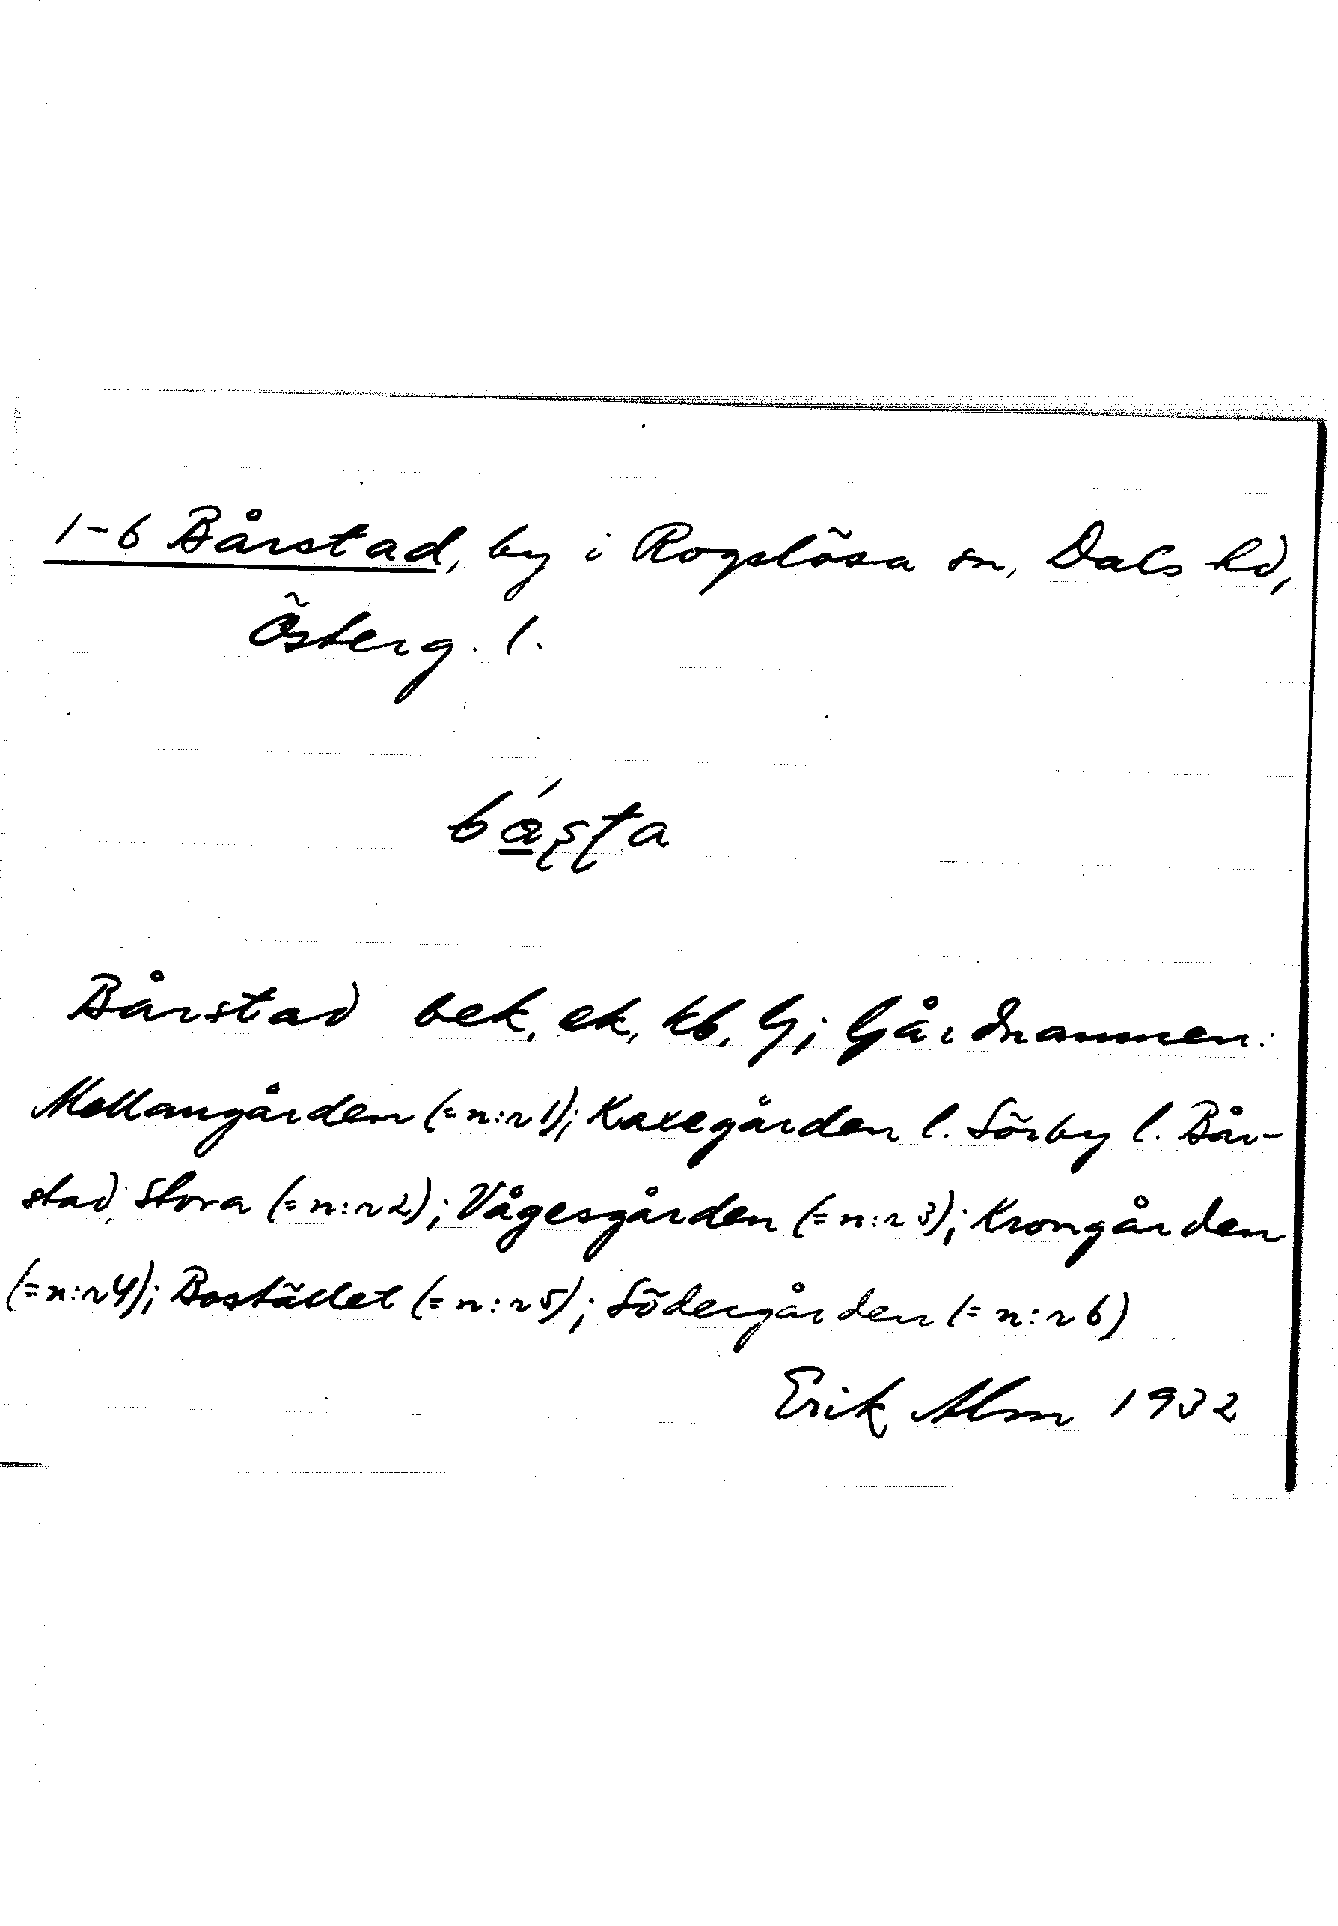 1-6 Bårstad, by i Rogslösa sn, Dals hd,
Österg. l.
Bårstad bek, ek, kb, G; Gårdnamnen:
Mellangården (= n:r 1); Kaxegården l. Sörby l. Bår-
stad, Stora (= n:r 2); Vågesgården (= n:r 3); Krongården
(= n:r 4); Bostället (= n:r 5); Södergården (= n:r 6)
Erik Alm 1932